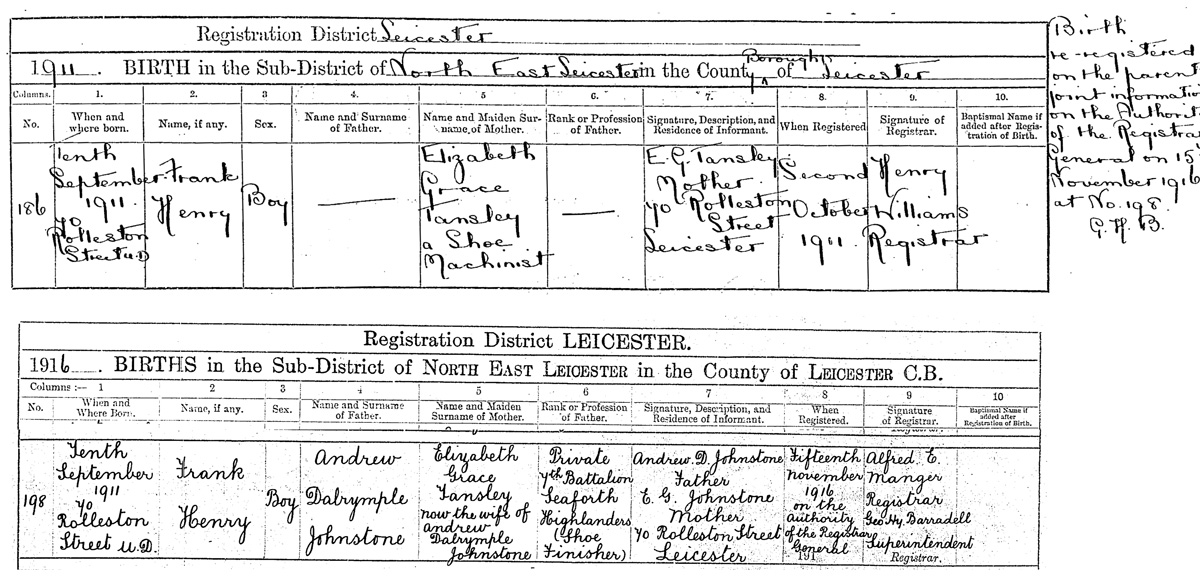 Registration District Leicester
1911. BIRTH in the Sub-District of North East Leicester in the County Borough of Leicester
Columns. 1. 2. 3 4. 5 6. 7. 8. 9. 10.
No. When and where born. Name, if any. Sex. Name and Surname of Father. Name and Maiden Surname, of Mother. Rank or Profession of Father. Signature, Description, and Residence of Informant. When Registered Signature of Registrar. Baptismal Name if added after Registration of Birth.
186
Tenth
September
1911.
70
Rolleston
Street U.D
Frank
Henry
Boy
Elizabeth
Grace
Tansley
a Shoe
Machinist
E. G. Tansley
Mother
70 Rolleston
Street
Leicester
Second
October
1911.
Henry
Williams
Registrar
Birth
re-registered
on the parent
joint informatio
on the Authorit
of the Registra
General on 15
November 1916
at No. 198.
G. H. B.
Registration District LEICESTER.
1916. BIRTHS in the Sub-District of NORTH EAST LEICESTER in the County of LEICESTER C.B.
Columns :— 1 2 3 4 5 6 7 8 9 10
No. When and Where Born. Name, if any. Sex. Name and Surname of Father. Name and Maiden Surname of Mother. Rank or Profession of Father. Signature, Description, and Residence of Informant. When Registered. Signature of Registrar. Baptismal Name if added after Registration of Birth.
198
Tenth
September
1911
70
Rolleston
Street U.D.
Frank
Henry
Boy
Andrew
Dalrymple
Johnstone
Elizabeth
Grace
Tansley
now the wife of
Andrew
Dalrymple
Johnstone
Private
7th Battalion
Seaforth
Highlanders
(Shoe
Finisher)
Andrew. D. Johnstone
Father
E. G. Johnstone
Mother
70 Rolleston Street
Leicester
Fifteenth
November
1916
on the
authority
of the Registrar
General
191
Alfred. E.
Manger
Registrar
Geo. Hy. Barradell
Superintendent
Registrar.